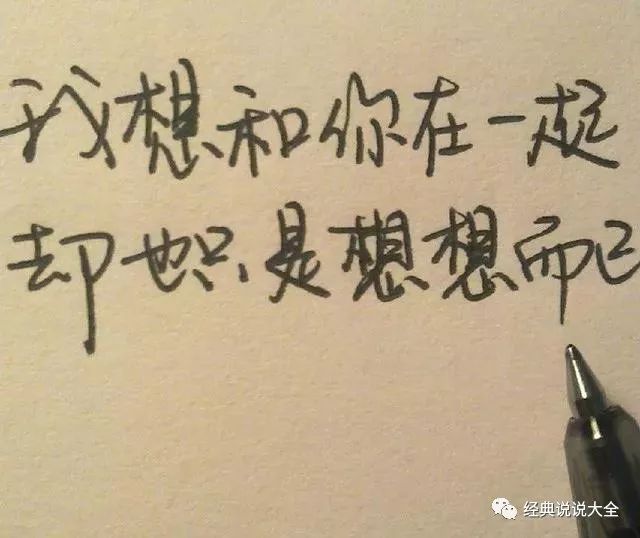 我想和你在一起
却也只是想想而已
经典说说大全